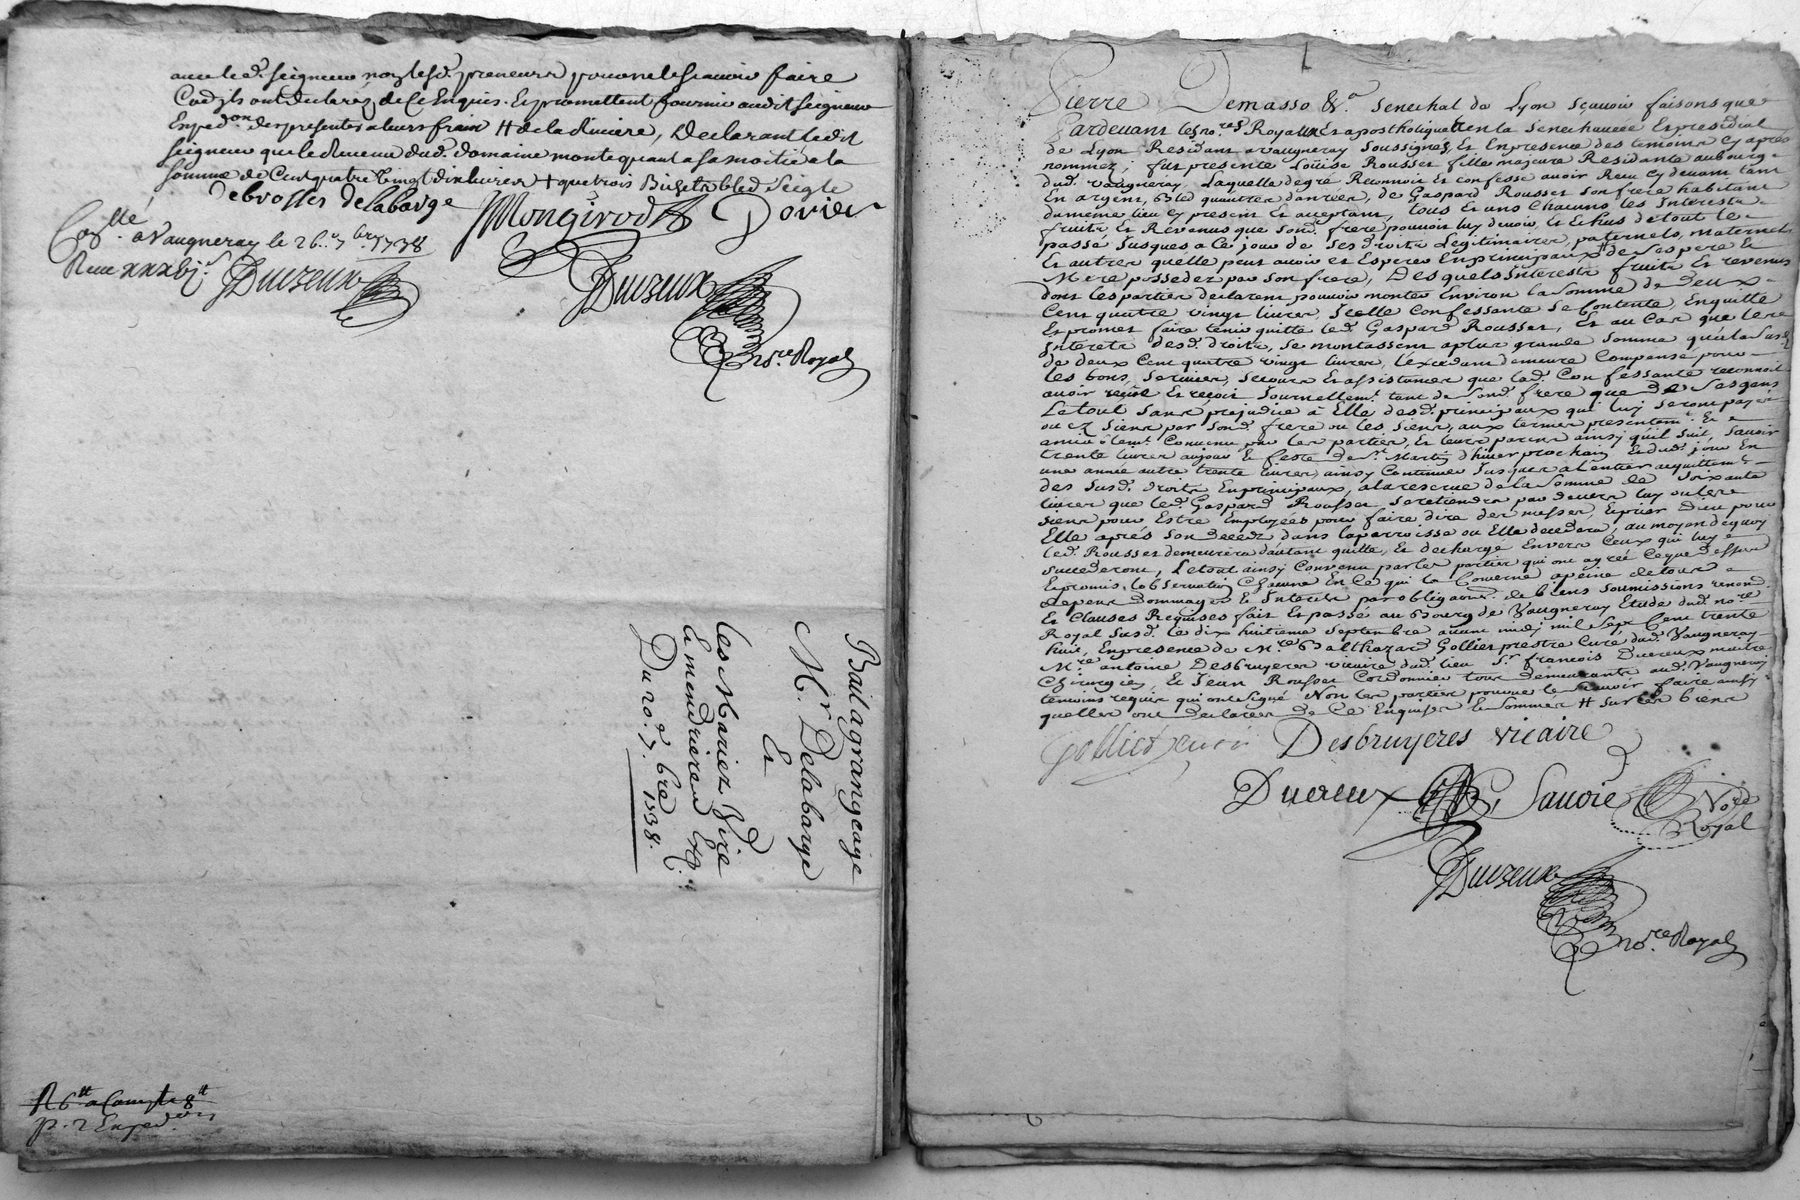 avec led. seigneur non lesd. preneurs pour ne le scavoir faire
Coe ils ont declarés de ce Enquis. Et promettent fournir audit seigneur
Exped.on des presentes a leurs frais # de la riviere, Declarant ledit
seigneur que le Revenu dud. domaine monte quant a sa moitié a la
somme de Cent quatre vingt dix livres + que trois Bichets bled seigle
debrosses delabarge Mongirod Dorier
Con.llé
a Vaugneray le 26.e 7.bre 1738
Receu xxxbj.s Duvzeux
Duvzeux
no.re Royal
Bail a grangeage
M.r Delabarge
Et
les Mariez Vire
Et
Du 20.e 7.bre 1738.
R 6tt a Compte 8tt
p. 2 Exped.ons
Pierre Demasso &.a senechal de Lyon sçavoir faisons que
Pardevant les no.res Royaux Et apostholique En la senechaucée Et presidial
de Lyon Residans a vaugneray soussignes, Et En presence des temoins cy apres
nommez, fut presente Loüise Rousset fille majeure Residante au bourg
dud. vaugneray, Laquelle de gré Reconnoit et confesse avoir Receu cy devant tant
En argent, bled qu'autres danrées, de Gaspard Rousset son frere habitant
du meme lieu cy present et acceptant, tous Et uns Chacuns les Interests
fruits et Revenus que sond. frere pouvoit luy devoir, et Echus de tout le
passé Jusques a ce jour de ses droits Legitimaires, paternels, maternels
Et autres quelle peut avoir et Esperer En principaux # de ses pere Et
Mere possedez par son frere, Desquels Interests fruits et revenus
dont les parties declarent pouvoir monter Environ la somme de Deux
Cent quatre vingt livres, Icelle Confessante se Contente, En quitte
Et promet faire tenir quitte led. Gaspard Rousset, Et au Cas que les
Interets desd. droits, se montassent a plus grande somme que la susd.
de deux Cent quatre vingt livres, l'excedant demeure Compensé pour
les bons, services, secours Et assistances que lad. Confessante reconnoit
avoir reçûe Et reçoit Journellem.t tant de sond. frere que de ses gens
Le tout sans prejudice à Elle desd. principaux qui luy seront payez
ou es siens par sond. frere ou les siens, aux termes presentem.t Et
amiablem.t Convenu par les parties, Et leurs parens ainsy qu'il suit, scavoir
trente livres au jour Et feste de S.t Martin d'hiver prochain Et dud. jour En
une année autre trente livres, ainsy Continuer Jusques a l'entier acquittem.t
des susd. droits En principaux, a la reserve de la somme de soixante
livres que led. Gaspard Rousset se retiendra par devers luy ou les
siens pour Estre Employées pour faire dire des messes, Et prier Dieu pour
Elle aprés son deceds dans la parroisse ou Elle decedera, au moyen de quoy
led. Rousset demeurera d'autant quitte, Et dechargé Envers Ceux qui luy
succederont, Le tout ainsy Convenu par les parties qui ont agreé Ce que dessus
Et promis l'observation Chacune En Ce qui la Concerne a peine de tous
depens dommages Et Interets par obligaon. de biens soumissions renond.
Et Clauses Requises fait Et passé au bourg de Vaugneray Etude dud. no.re
Royal susd. le dix huitieme septembre avant midy mil sept Cent trente
huit, En presence de M.re Balthazard Gollier prestre Curé dud. Vaugneray
M.re antoine Desbruyeres vicaire dud. lieu S.r francois Ducreux maitre
Chirurgien, Et Jean Rousset Cordonnier tous demeurants aud. Vaugneray
temoins requis qui ont signé Non les parties pour ne le scavoir faire ainsy
quelles ont declarées de Ce Enquises Et sommées # sur les biens
Desbruyeres vicaire
Ducreux Savoie No.re
Royal
Duvzeux
no.re Royal